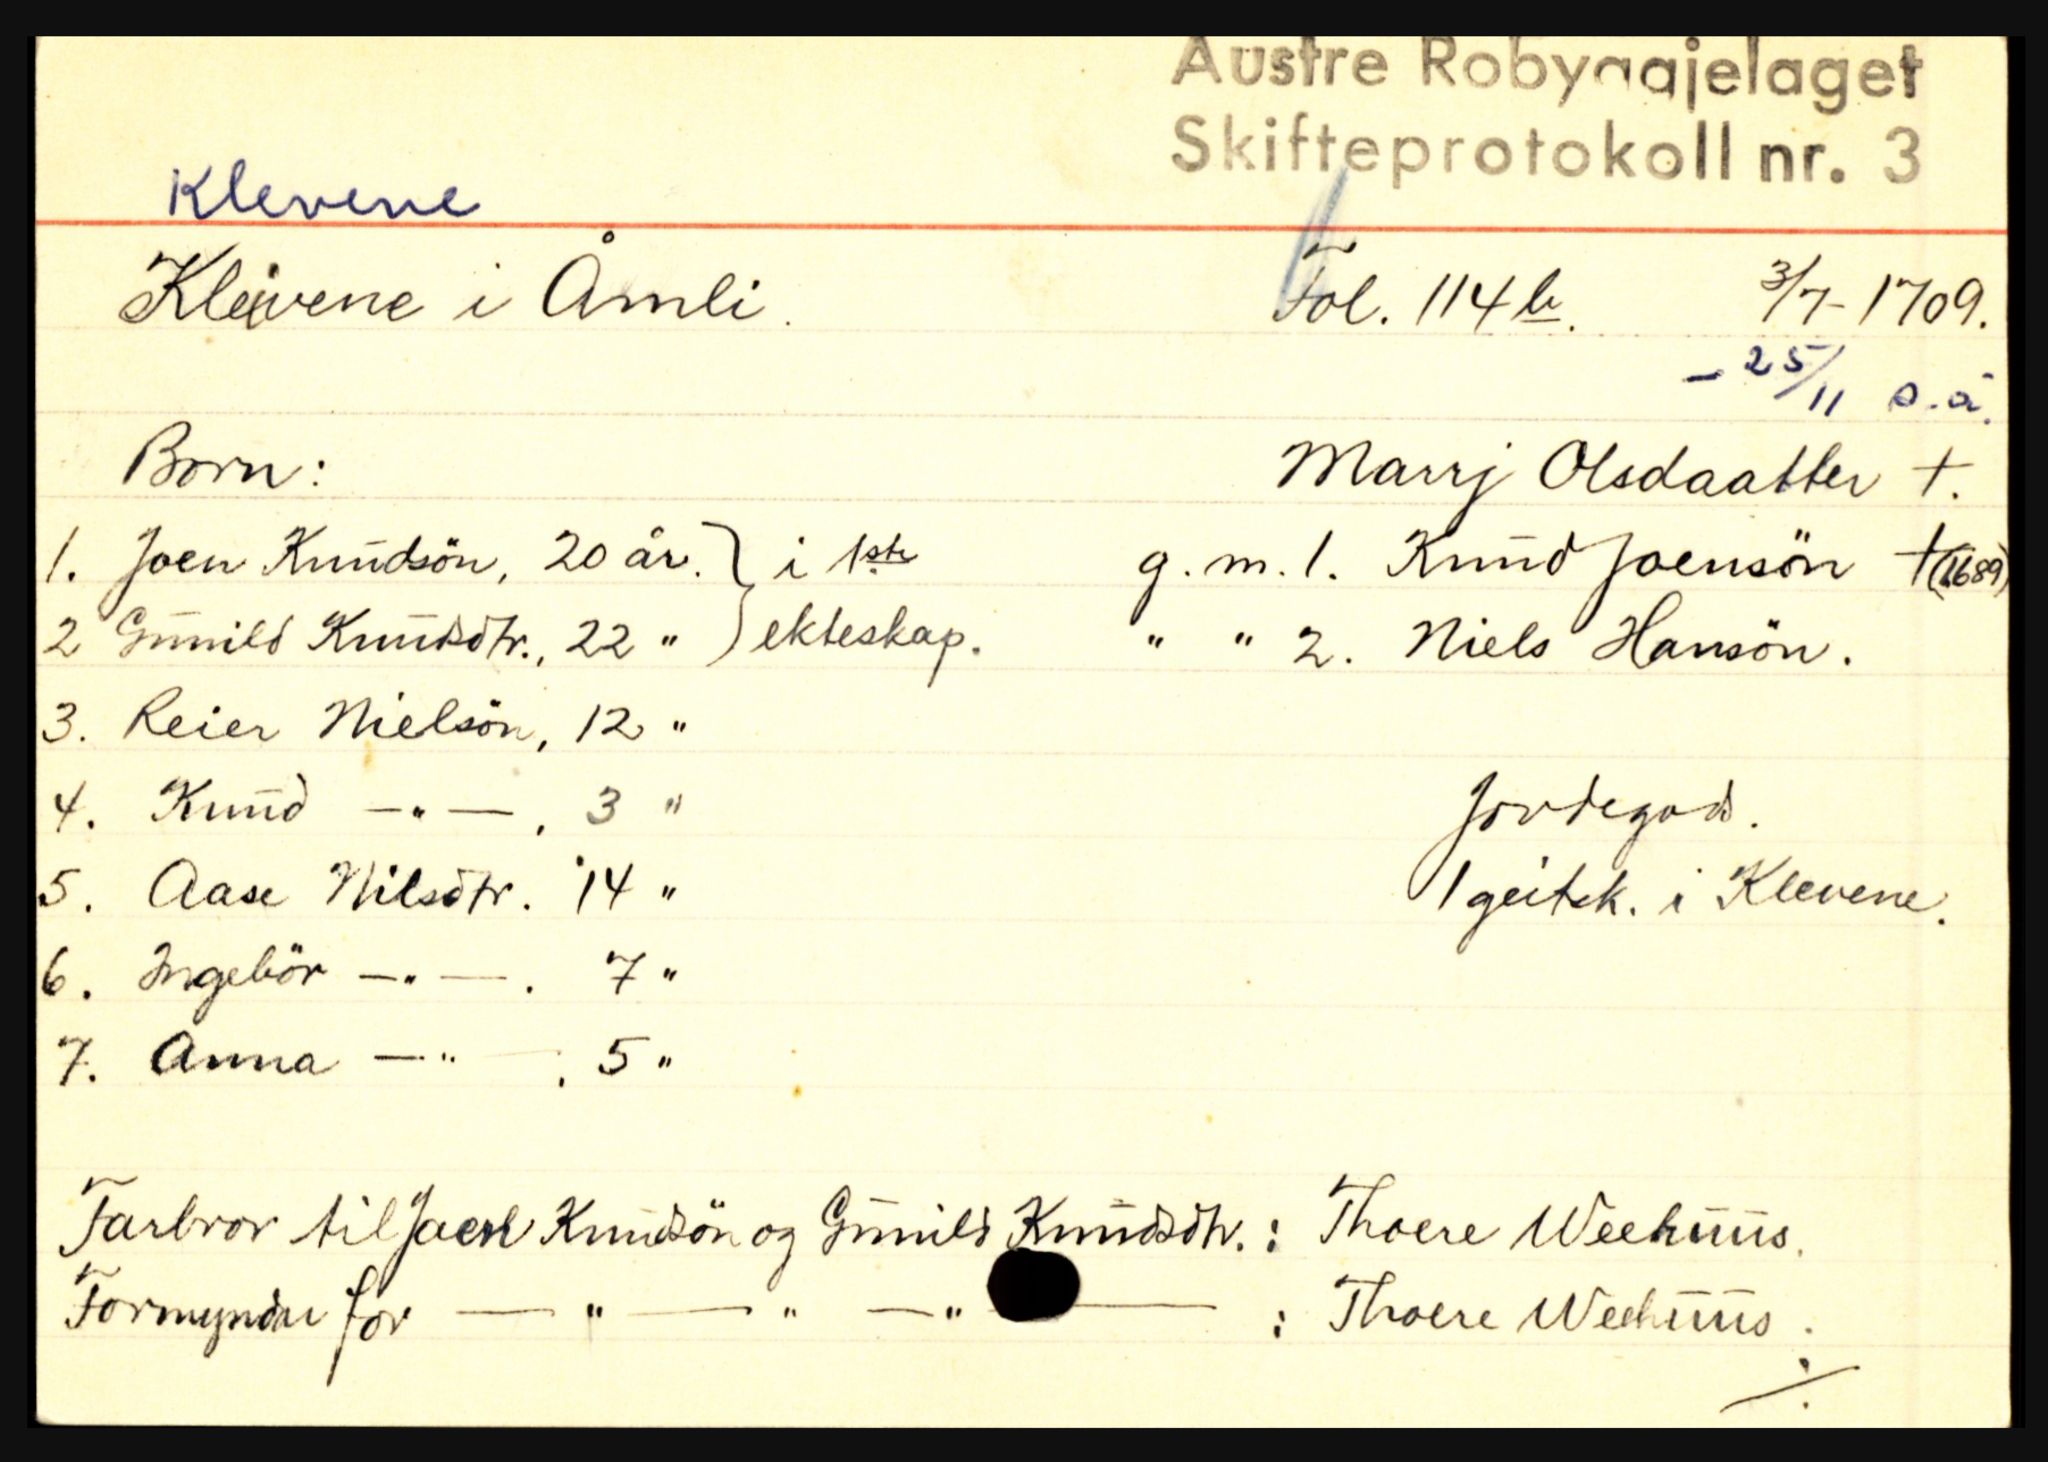 Austre Robyggjelaget
Skifteprotokoll nr. 3
Klevene
Kleivene i Åmli. Fol. 114 b. 3/7-1709.
- 25/11 s.å.
Born: Marrj Olsdaatter †.
1. Joen Knudsön, 20 år. } i 1ste g. m. 1. Knud Joensön † (1689)
2 Gunild Knudsdtr., 22 " } ekteskap. " " 2. Niels Hansön.
3. Reier Nielsön, 12 "
4. Knud —"—, 3 " Jordegods.
5. Aase Nilsdtr. 14 " 1 geitsk. i Klevene.
6. Ingebör —"—. 7 "
7. Anna —"—, 5 "
Farbror til Joen Knudsön og Gunild Knudsdtr.: Thoere Weehuus.
Formyndar for — " — " — " — : Thoere Weehuus.
./.